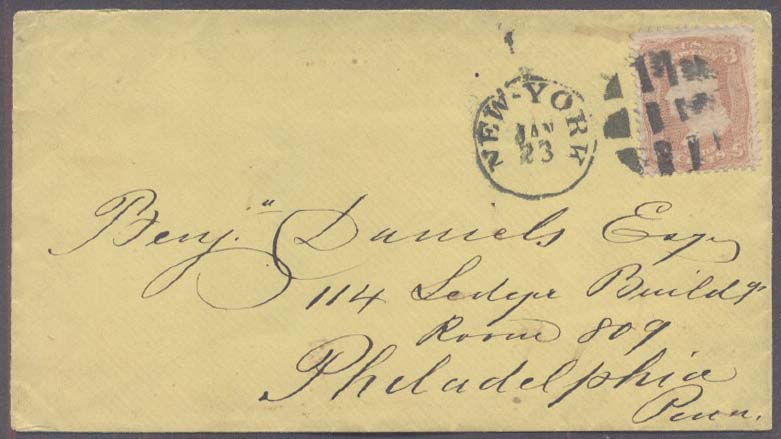 NEW-YORK
JAN
23
Benj." Daniels Esq
114 Ledger Build'gs
Room 809
Philadelphia
Penn.